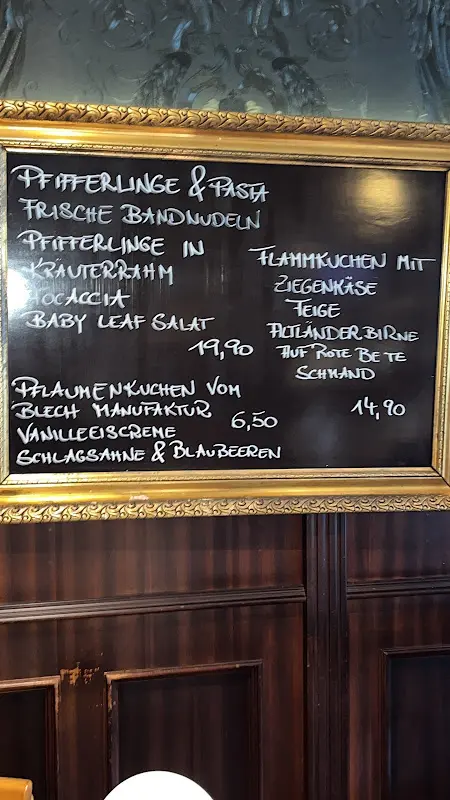 PFIFFERLINGE & PASTA
FRISCHE BANDNUDELN
PFIFFERLINGE IN
KRÄUTERRAHM
FOCACCIA
BABY LEAF SALAT
19,90
PFLAUMENKUCHEN VOM
BLECH MANUFAKTUR
6,50
VANILLEEISCREME
SCHLAGSAHNE & BLAUBEEREN
FLAMMKUCHEN MIT
ZIEGENKÄSE
FEIGE
ALTLÄNDER BIRNE
AUF ROTE BETE
SCHMAND
14,90